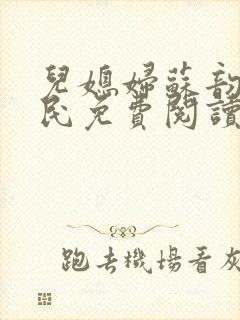 兒媳婦蘇韵
民免費閱讀
跑去機場看灰